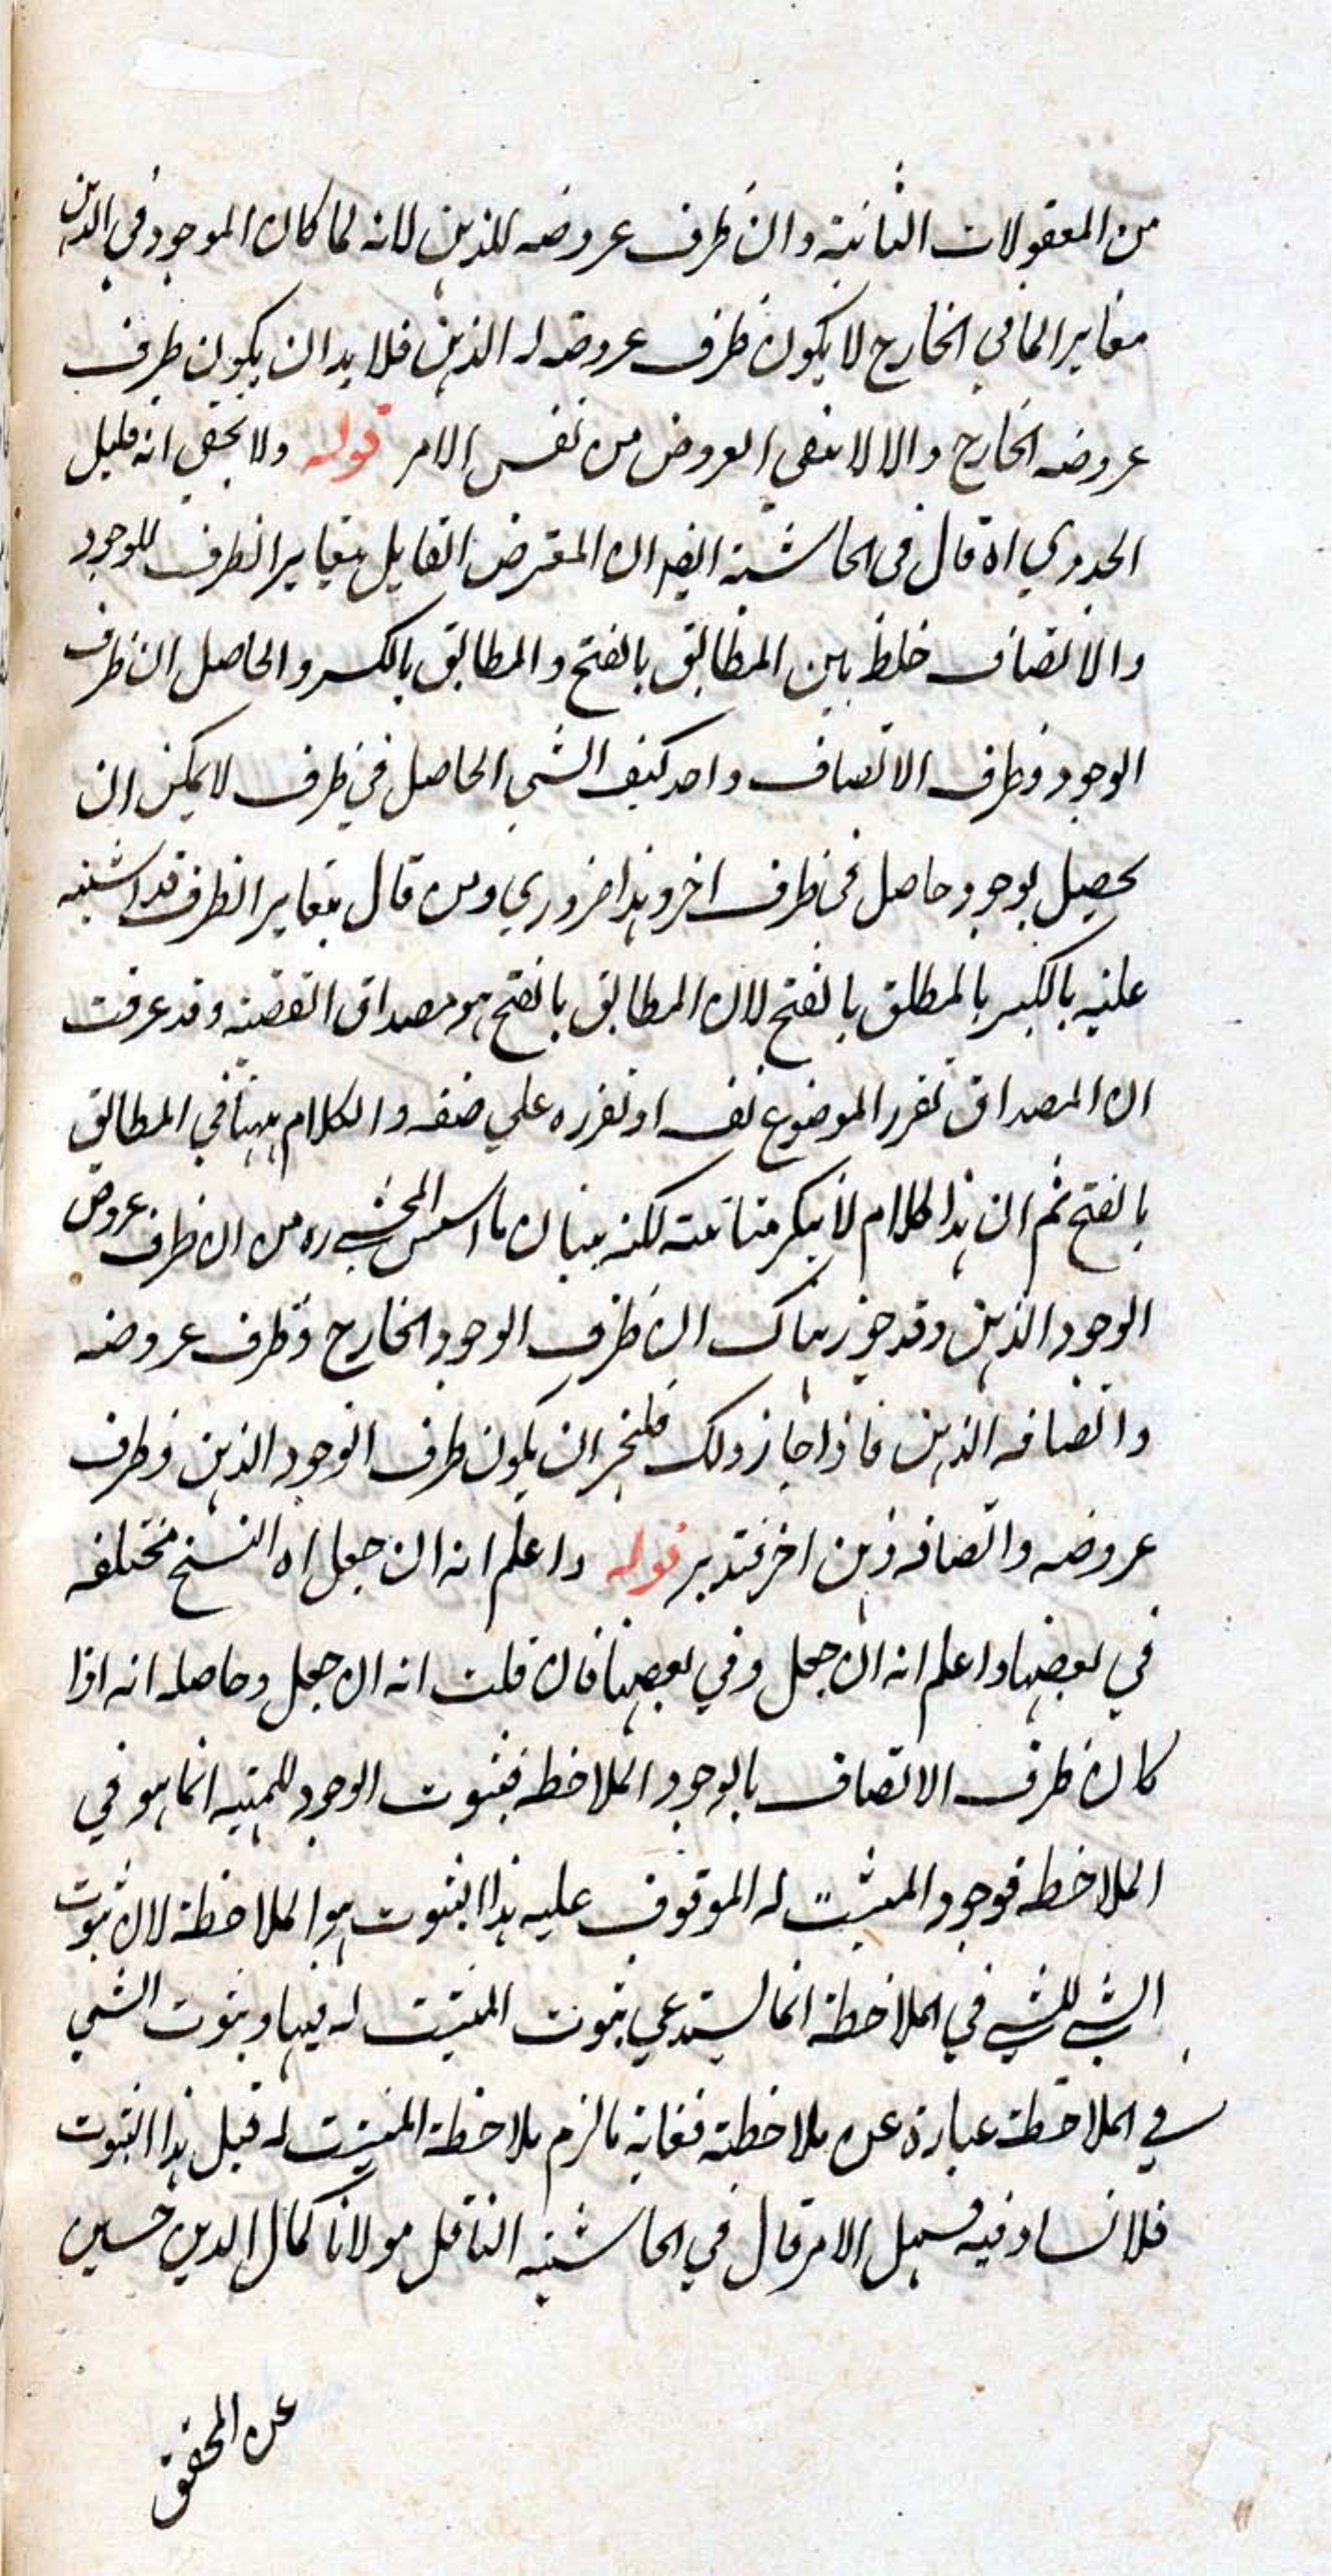 من المعقولات الثانية وان ظرف عروضه للذهن لانه لما كان الموجود في الذهن
مغايرا لما في الخارج لا يكون ظرف عروضه له الذهن فلا بد ان يكون ظرف
عروضه الخارج والا لانتفى العروض من نفس الامر قوله ولا يخفى انه قليل
الجدوي اه قال في الحاشية ايضا ان المعترض القايل بتغاير الظرف للوجود
والاتصاف خلط بين المطابق بالفتح والمطابق بالكسر والحاصل ان ظرف
الوجود وظرف الاتصاف واحد كيف الشي الحاصل في ظرف لا يمكن ان
يحصل بوجود حاصل في ظرف اخر وهذا ضروري ومن قال بتغاير الظرف قد اشتبه
عليه بالكسر بالمطلق بالفتح لان المطابق بالفتح هو مصداق القضية وقد عرفت
ان المصداق تقرر الموضوع نفسه او تقرره علي صفة والكلام ههنا في المطابق
بالفتح ثم ان هذا الكلام لا ينكر متانته لكنه ينافي ما اسس المحشي ره من ان ظرف عروض
الوجود الذهن وقد جوز هناك ان ظرف الوجود الخارج وظرف عروضه
واتصافه الذهن فاذا جاز ذلك فليجز ان يكون ظرف الوجود الذهن وظرف
عروضه واتصافه ذهن اخر فتدبر قوله واعلم انه ان جعل اه النسخ مختلفه
في بعضها واعلم انه ان جعل وفي بعضها فان قلت انه ان جعل وحاصله انه اذا
كان ظرف الاتصاف بالوجود الملاحظه فثبوت الوجود للمهيه انما هو في
الملاحظه فوجود المثبت له الموقوف عليه هذا الثبوت هو الملاحظة لان ثبوت
الشي للشي في الملاحظة انما يستدعي ثبوت المثبت له فيها وثبوت الشي
في الملاحظة عبارة عن ملاحظته فغاية ما لزم ملاحظة المثبت له قبل هذا الثبوت
فلا فساد فيه فسهل الامر قال في الحاشية الناقل مولانا كمال الدين حسين
عن المحقق